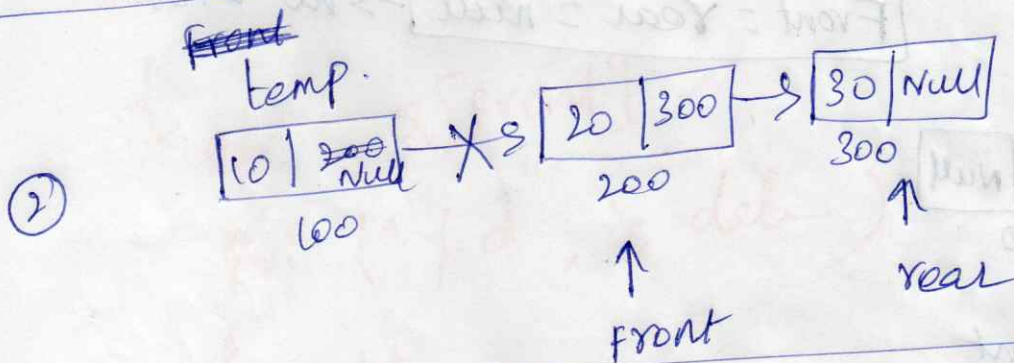 Front
temp.
10 | 200 Null
20 | 300
30 | Null
100
200
300
②
Front
rear